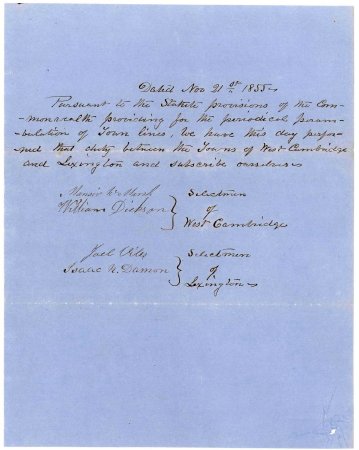 Dated Nov 21st, 1855
Pursuant to the Statute provisions of the Com-
-monwealth providing for the periodical peram-
-bulation of Town lines, we have this day perfor-
med that duty between the Towns of West Cambridge
and Lexington and subscribe ourselves
William Dickson
Selectmen
of
West Cambridge
Joel Viles
Isaac N. Damon
Selectmen
of
Lexington